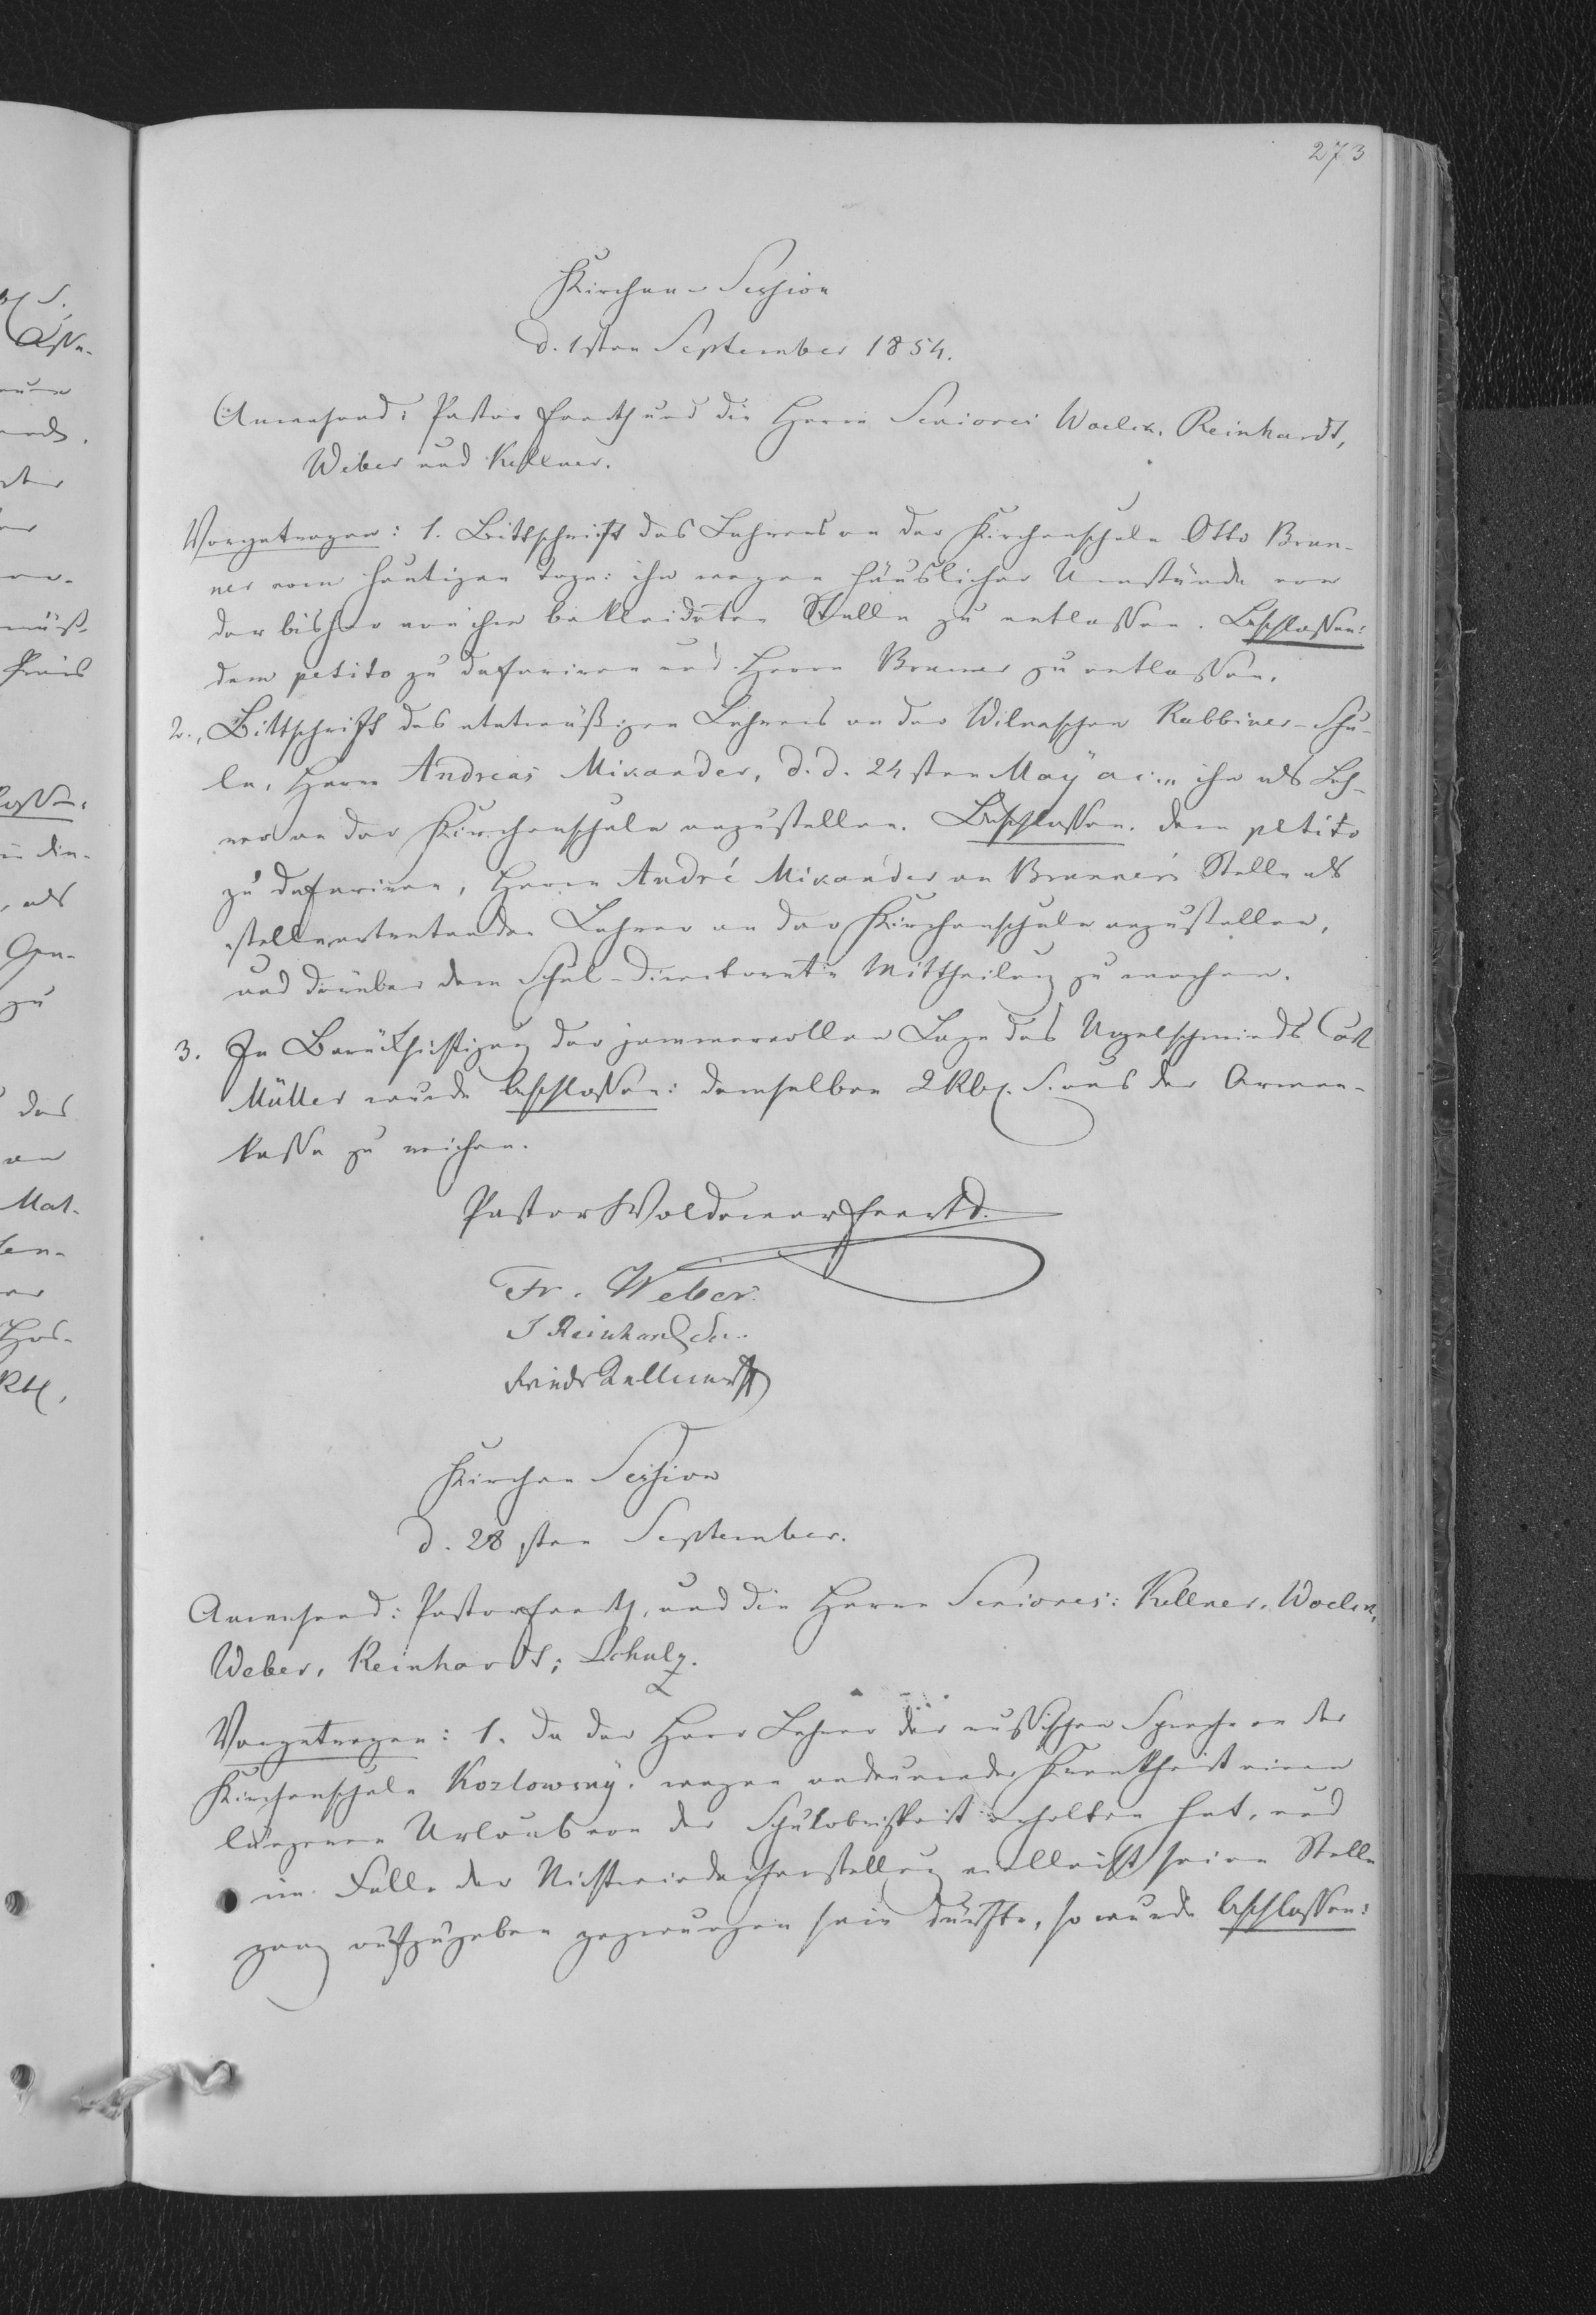 273
Kirchen-Session
d. 1sten September 1854.
Anwesend: Pastor Everth und die Herrn Seniores Woelck, Reinhardt,
Weber und Kellner.
Vorgetragen: 1. Bittschrift des Lehrers an der Kirchenschule Otto Brun-
ner vom heutigen Tage: ihn wegen häuslicher Umstände von
der bisher von ihm bekleideten Stelle zu entlassen. Beschlossen:
dem petito zu deferiren und Herrn Brunner zu entlassen.
2., Bittschrift des etatmäßigen Lehrers an der Wilnaschen Rabbiner-Schu-
le, Herrn Andreas Mixander, d. d. 24sten May a c: ihn als Leh-
rer an der Kirchenschule anzustellen. Beschlossen. dem petito
zu deferiren, Herrn André Mixander an Brunner's Stelle als
stellvertretenden Lehrer an der Kirchenschule anzustellen,
und darüber dem Schul-Directorate Mittheilung zu machen.
3. In Berücksichtigung der jammervollen Lage des Nagelschmieds Carl
Müller wurde beschlossen: demselben 2 Rbl. S. aus der Armen-
kasse zu reichen.
Pastor Woldemar Everth.
Fr. Weber.
J Reinhard Sen.
Friedr Kellner
Kirchen Session
d. 28sten September.
Anwesend: Pastor Everth, und die Herrn Seniores: Kellner, Woelck,
Weber, Reinhardt; Schulz.
Vorgetragen: 1. Da der Herr Lehrer der russischen Sprache an der
Kirchenschule Kozlowsky, wegen andauernder Krankheit einen
längeren Urlaub von der Schulobrigkeit erhalten hat, und
im Falle der Nichtwiederherstellung vielleicht seine Stelle
ganz aufzugeben gezwungen sein dürfte, so wurde beschlossen: